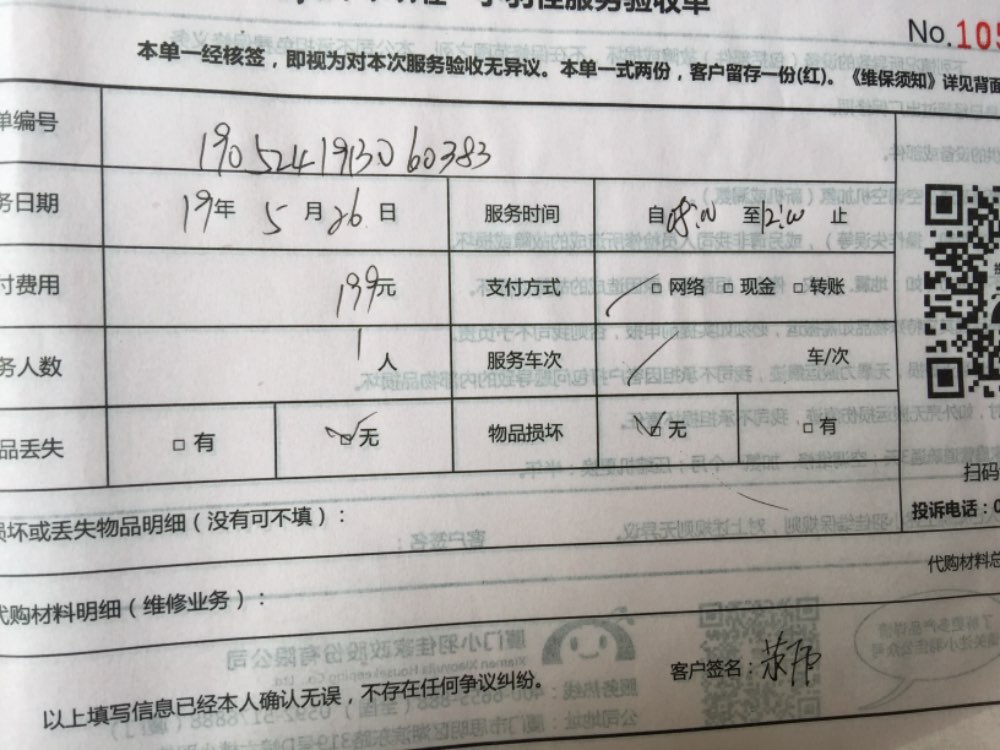 小羽佳服务验收单
No.105
本单一经核签，即视为对本次服务验收无异议。本单一式两份，客户留存一份(红)。《维保须知》详见背面
单编号 190524193060383
务日期 19年 5 月 26 日 服务时间 自08:00 至12:00 止
付费用 199元 支付方式 □ 网络 □ 现金 □ 转账
务人数 1 人 服务车次 车/次
品丢失 □ 有 ☑ 无 物品损坏 ☑ 无 □ 有
扫码
损坏或丢失物品明细（没有可不填）：
投诉电话：0
代购材料总
代购材料明细（维修业务）：
客户签名：
以上填写信息已经本人确认无误，不存在任何争议纠纷。